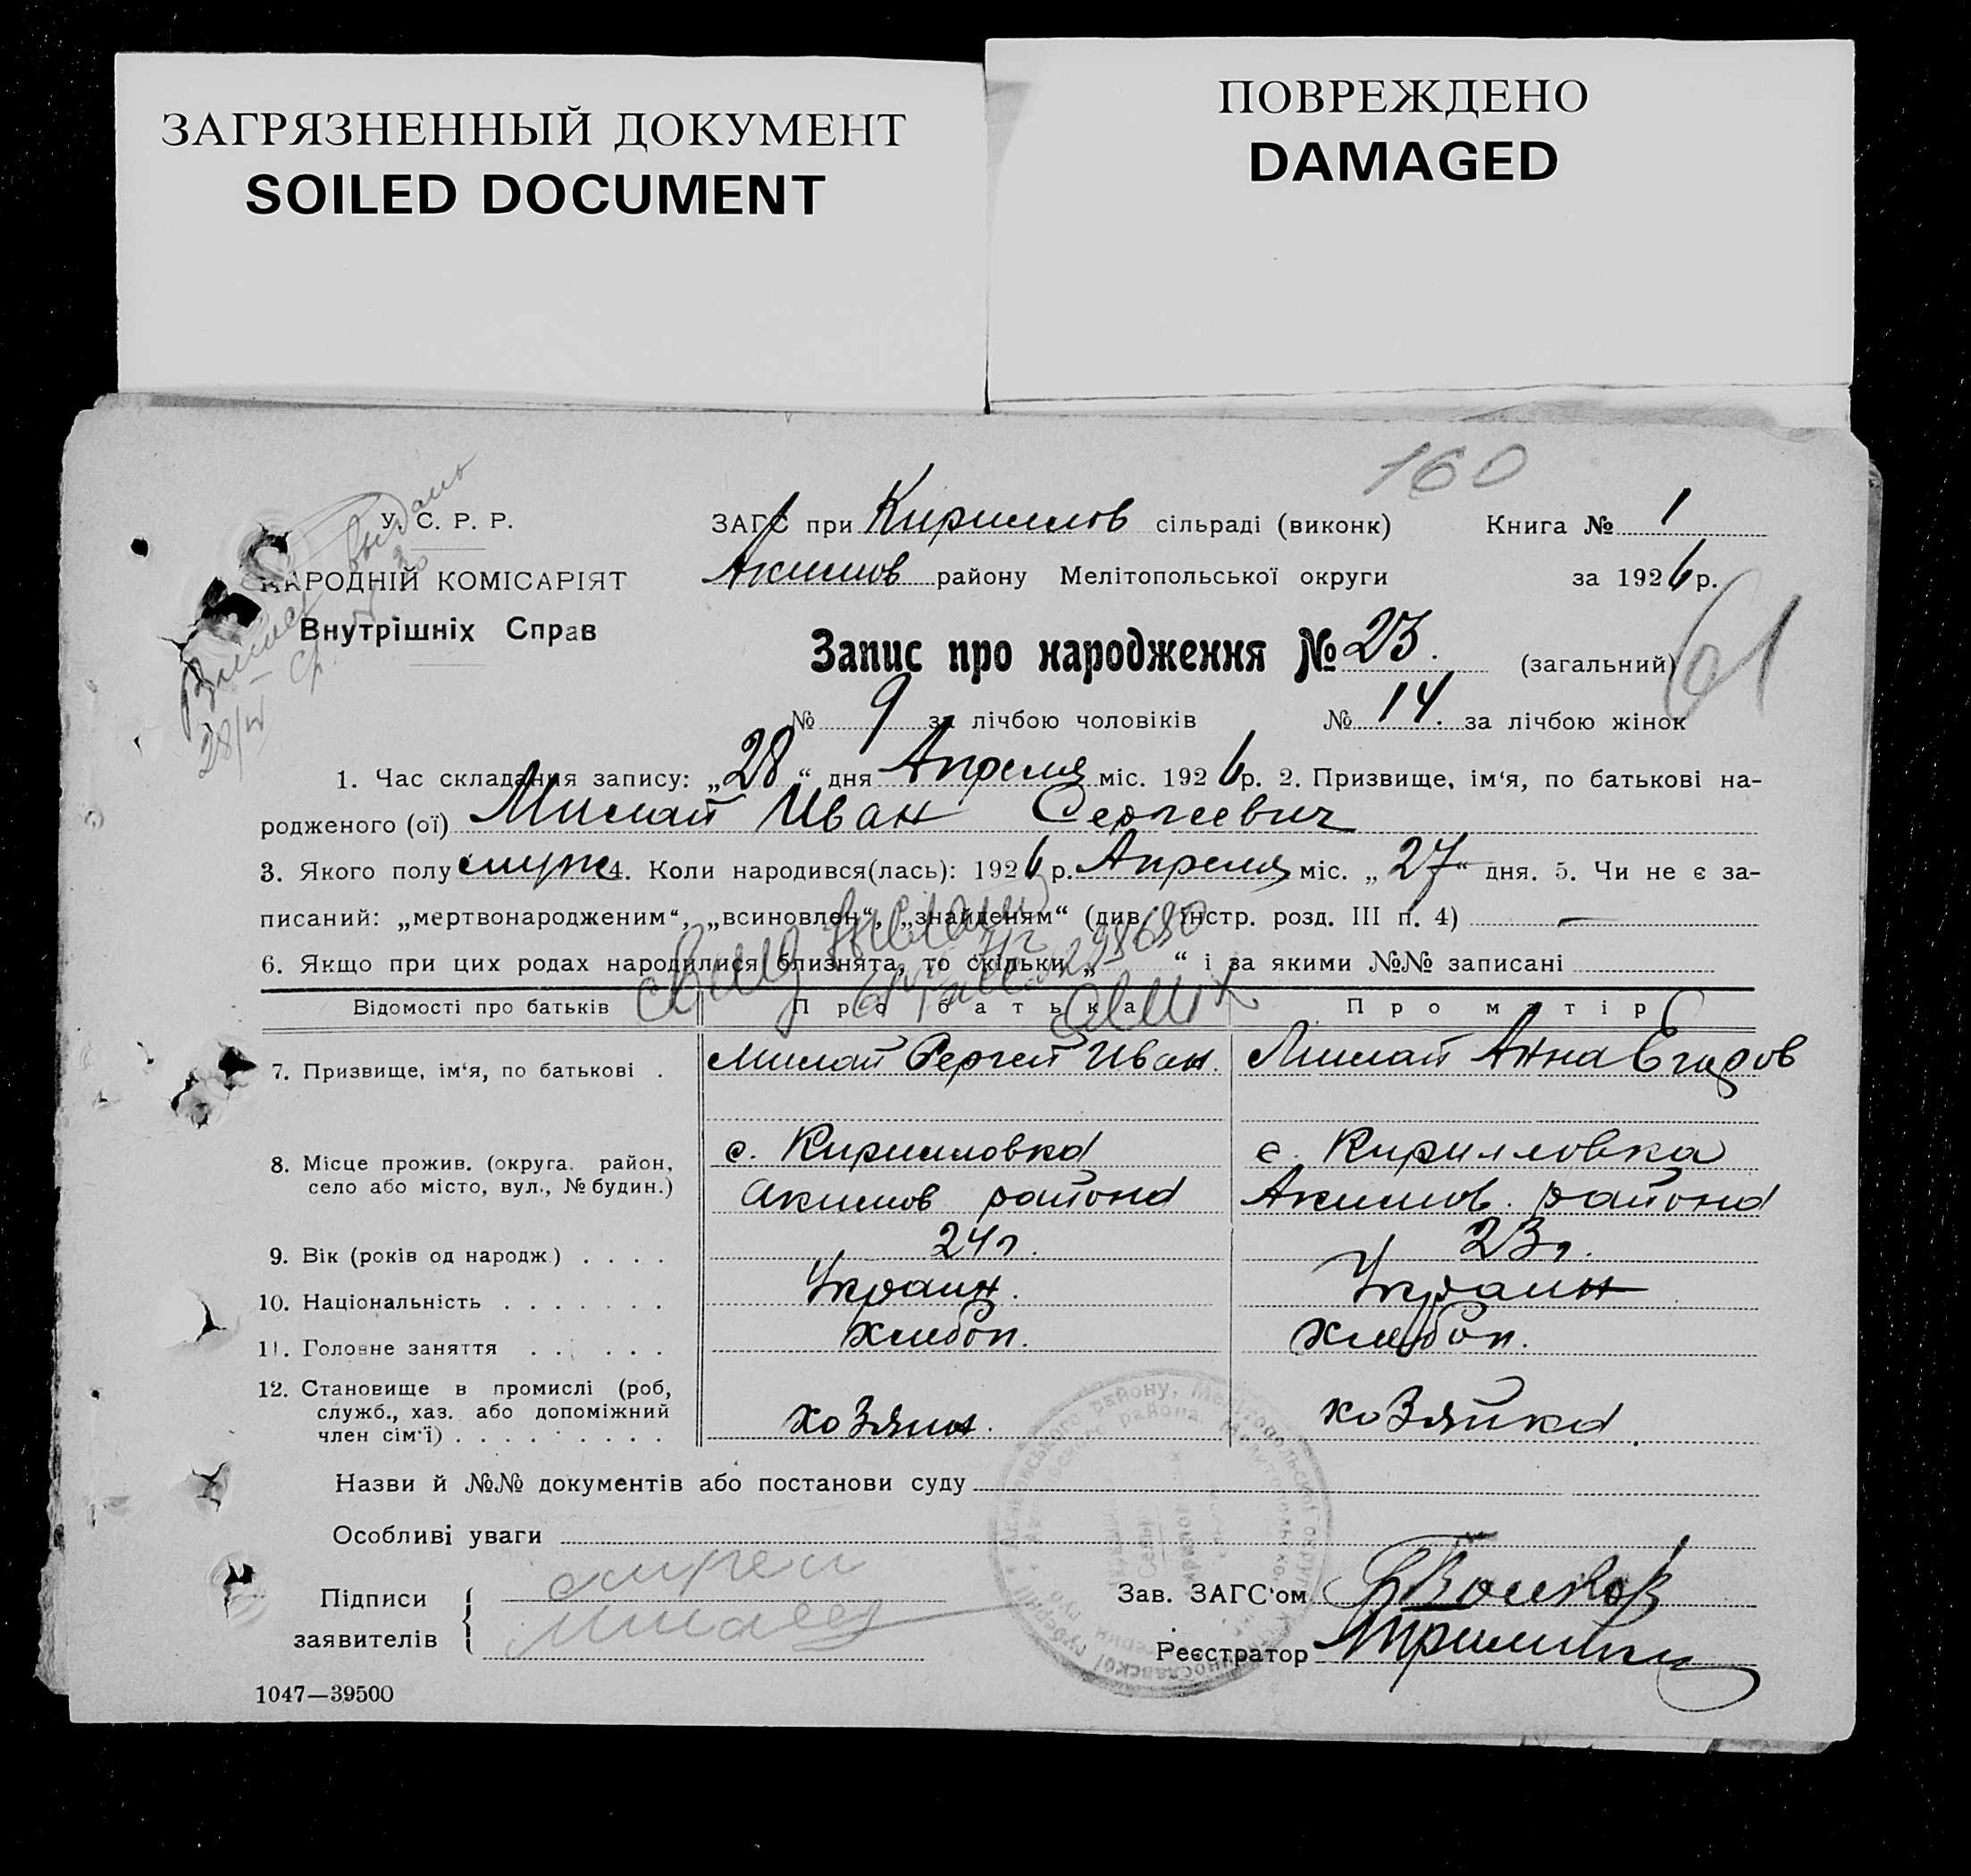 ЗАГРЯЗНЕННЫЙ ДОКУМЕНТ
SOILED DOCUMENT
ПОВРЕЖДЕНО
DAMAGED
160
У. С. Р. Р.
НАРОДНІЙ КОМІСАРІЯТ
Внутрішніх Справ
ЗАГС при Кириллов сільраді (виконк) Книга № 1
Акимов району Мелітопольської округи за 1926 р.
Запис про народження № 23. (загальний)
61
№ 9 за лічбою чоловіків № 14. за лічбою жінок
1. Час складання запису: „28“ дня Апреля міс. 1926 р. 2. Призвище, ім‘я, по батькові на-
родженого (ої) Милай Иван Сергеевич
3. Якого полу муж 4. Коли народився(лась): 1926 р. Апреля міс. „27“ дня. 5. Чи не є за-
писаний: „мертвонародженим“, „всиновлен“, „знайденям“ (див. інстр. розд. III п. 4) —
6. Якщо при цих родах народилися близнята, то скільки „ “ і за якими №№ записані
Відомості про батьків Про батька Про матір
7. Призвище, ім‘я, по батькові . Милай Сергей Иван. Милай Анна Егоров
8. Місце прожив. (округа. район, с. Кирилловка с. Кирилловка
село або місто, вул., № будин.) Акимов района Акимов. района
9. Вік (років од народж.) . . . . 24 г. 23 г.
10. Національність . . . . . . . Украин. Украин
11. Головне заняття . . . . . . Хлебоп. Хлебоп.
12. Становище в промислі (роб,
служб., хаз. або допоміжний
член сім‘ї) . . . . . . . . . хозяин. хозяйка.
Назви й №№ документів або постанови суду
Особливі уваги
Підписи
заявителів
Зав. ЗАГС‘ом
Реєстратор
1047—39500